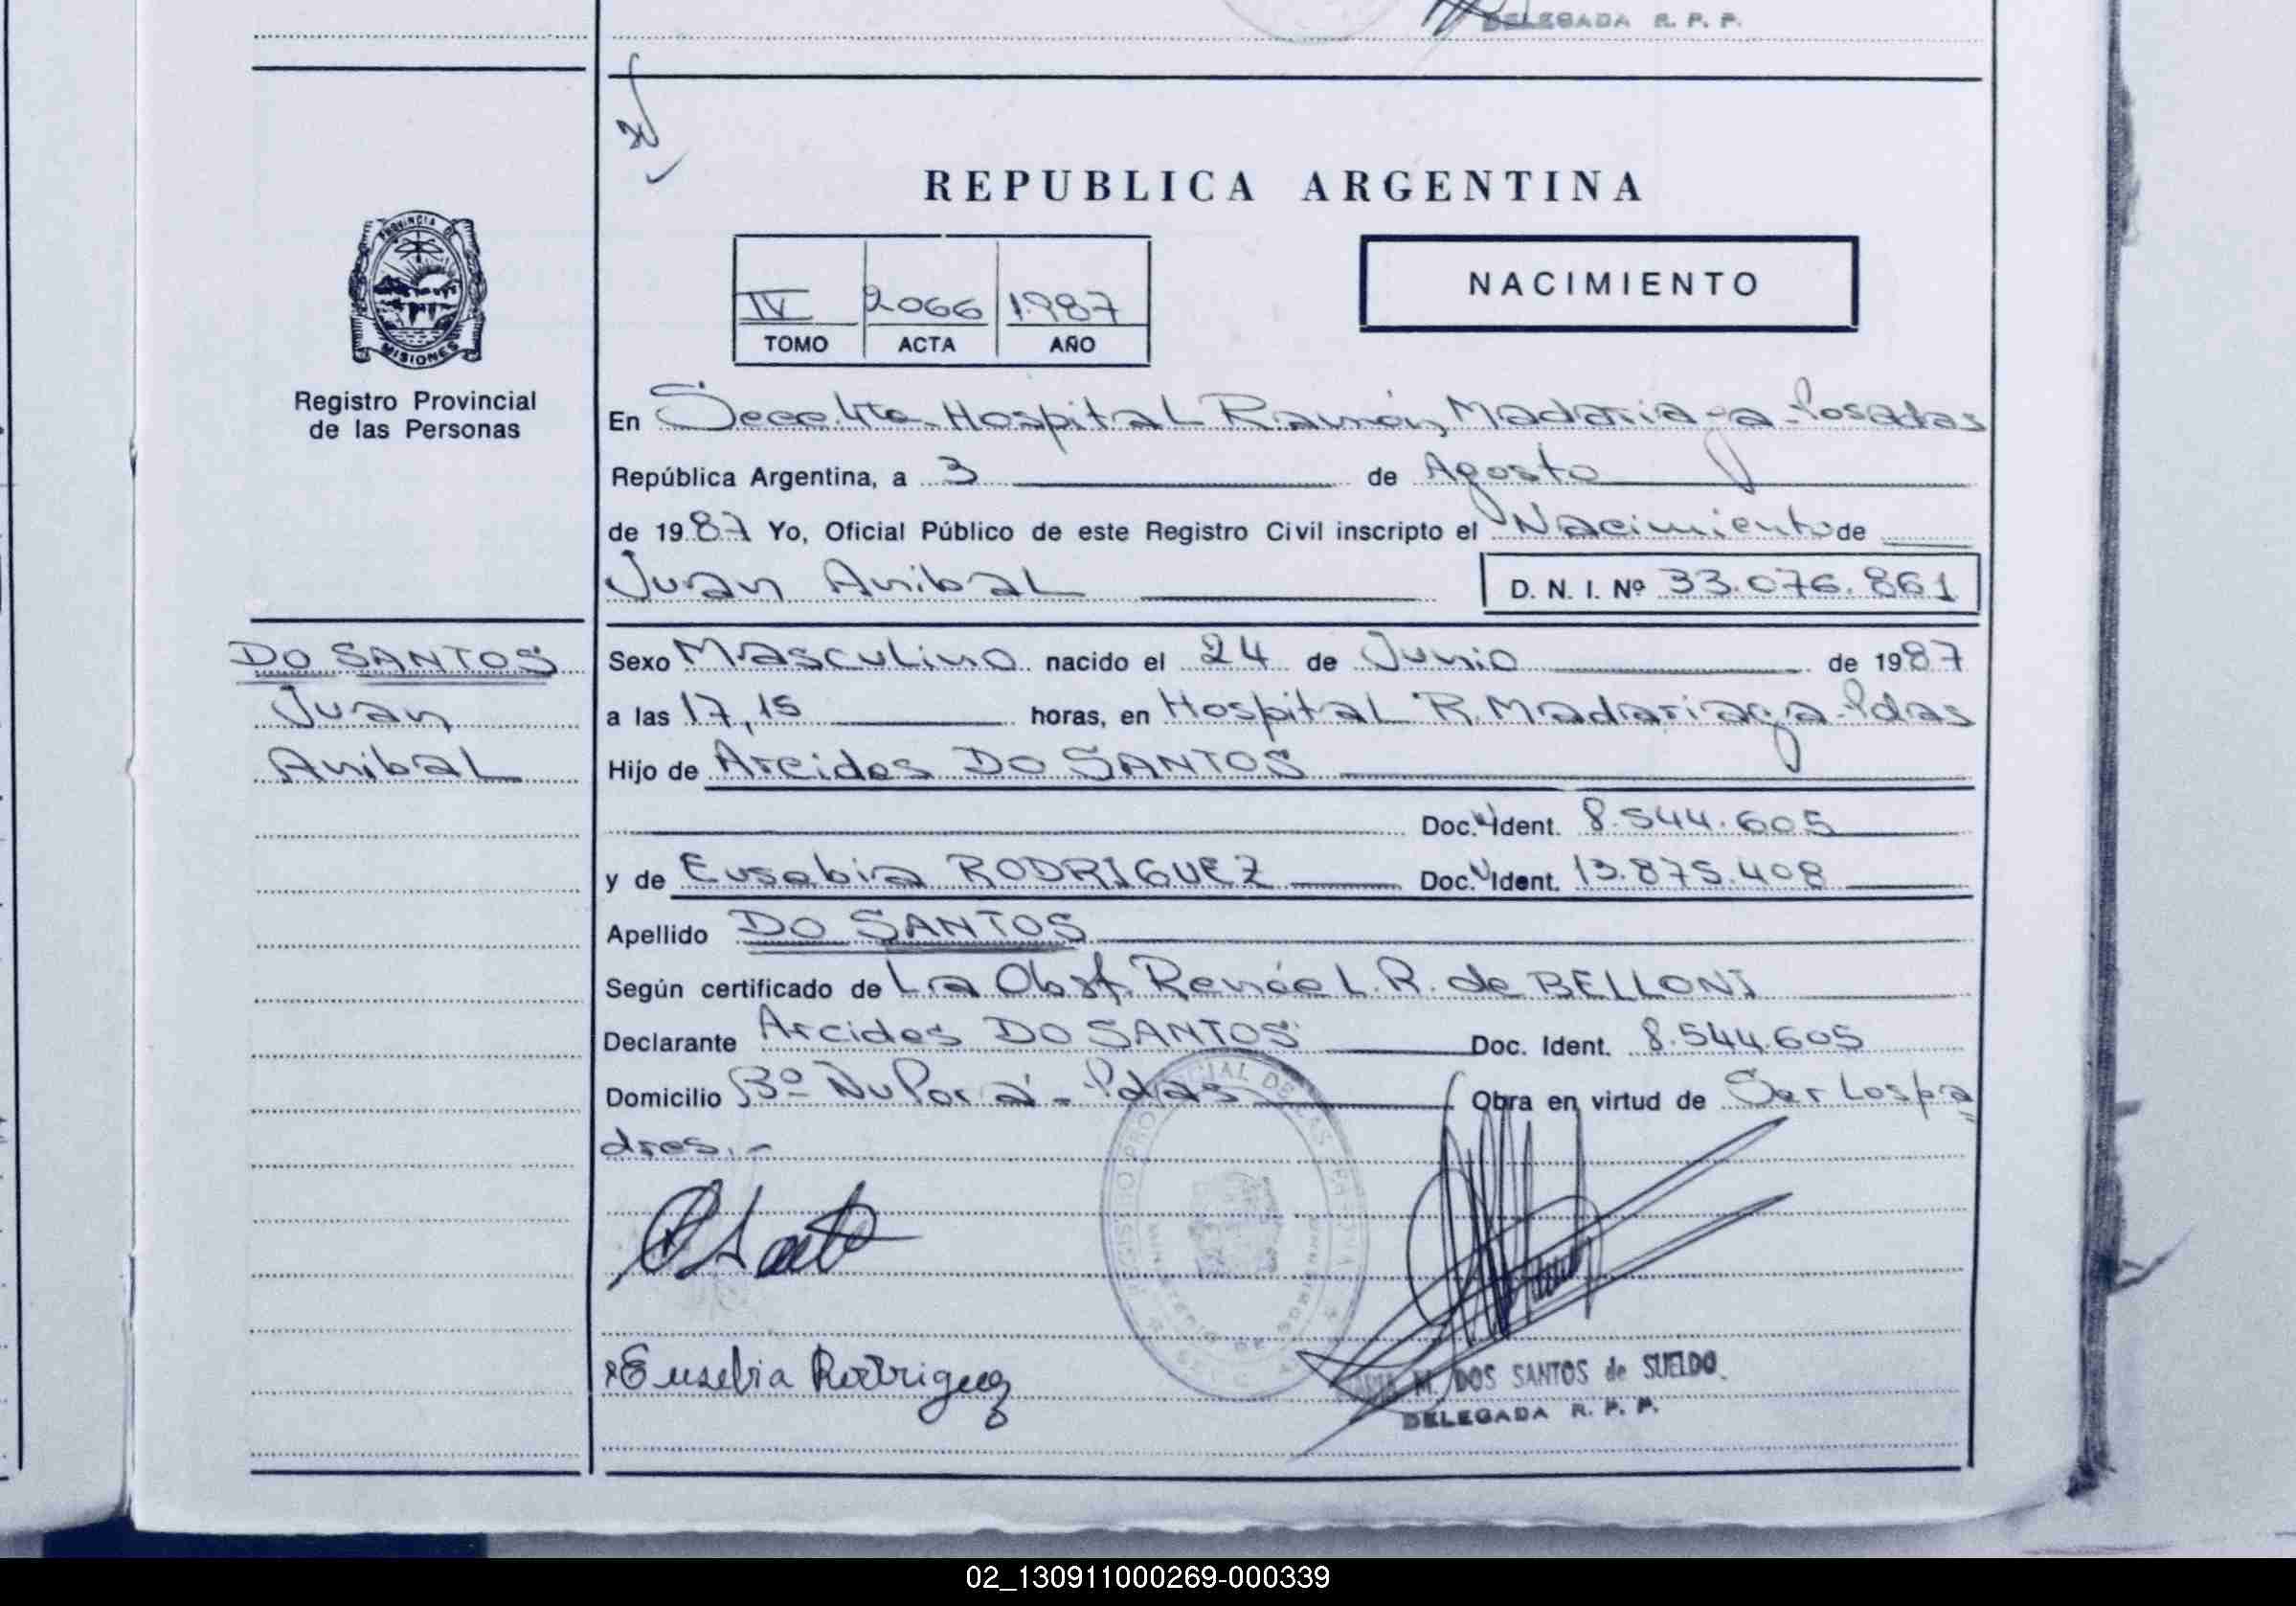 DELEGADA R. P. P.
REPUBLICA ARGENTINA
PROVINCIA DE
MISIONES
Registro Provincial
de las Personas
IV 2066 1987
TOMO ACTA AÑO
NACIMIENTO
En Hospital Ramón Madariaga-Posadas
República Argentina, a 3 de Agosto
de 1987 Yo, Oficial Público de este Registro Civil inscripto el Nacimiento de
Juan Anibal D. N. I. Nº 33.076.861
DO SANTOS
Juan
Anibal
Sexo Masculino nacido el 24 de Junio de 1987
a las 17,15 horas, en Hospital R. Madariaga-Pdas
Hijo de Arcides DO SANTOS
Doc. Ident. 8.544.605
y de Eusebia RODRIGUEZ Doc. Ident. 13.875.408
Apellido DO SANTOS
Según certificado de La Obst. Renée L. R. de BELLONI
Declarante Arcides DO SANTOS Doc. Ident. 8.544.605
Domicilio Bº Ñu Porá - Pdas Obra en virtud de Ser los pa
dres.-
Eusebia Rodriguez
M. DOS SANTOS de SUELDO
DELEGADA R. P. P.
02_130911000269-000339